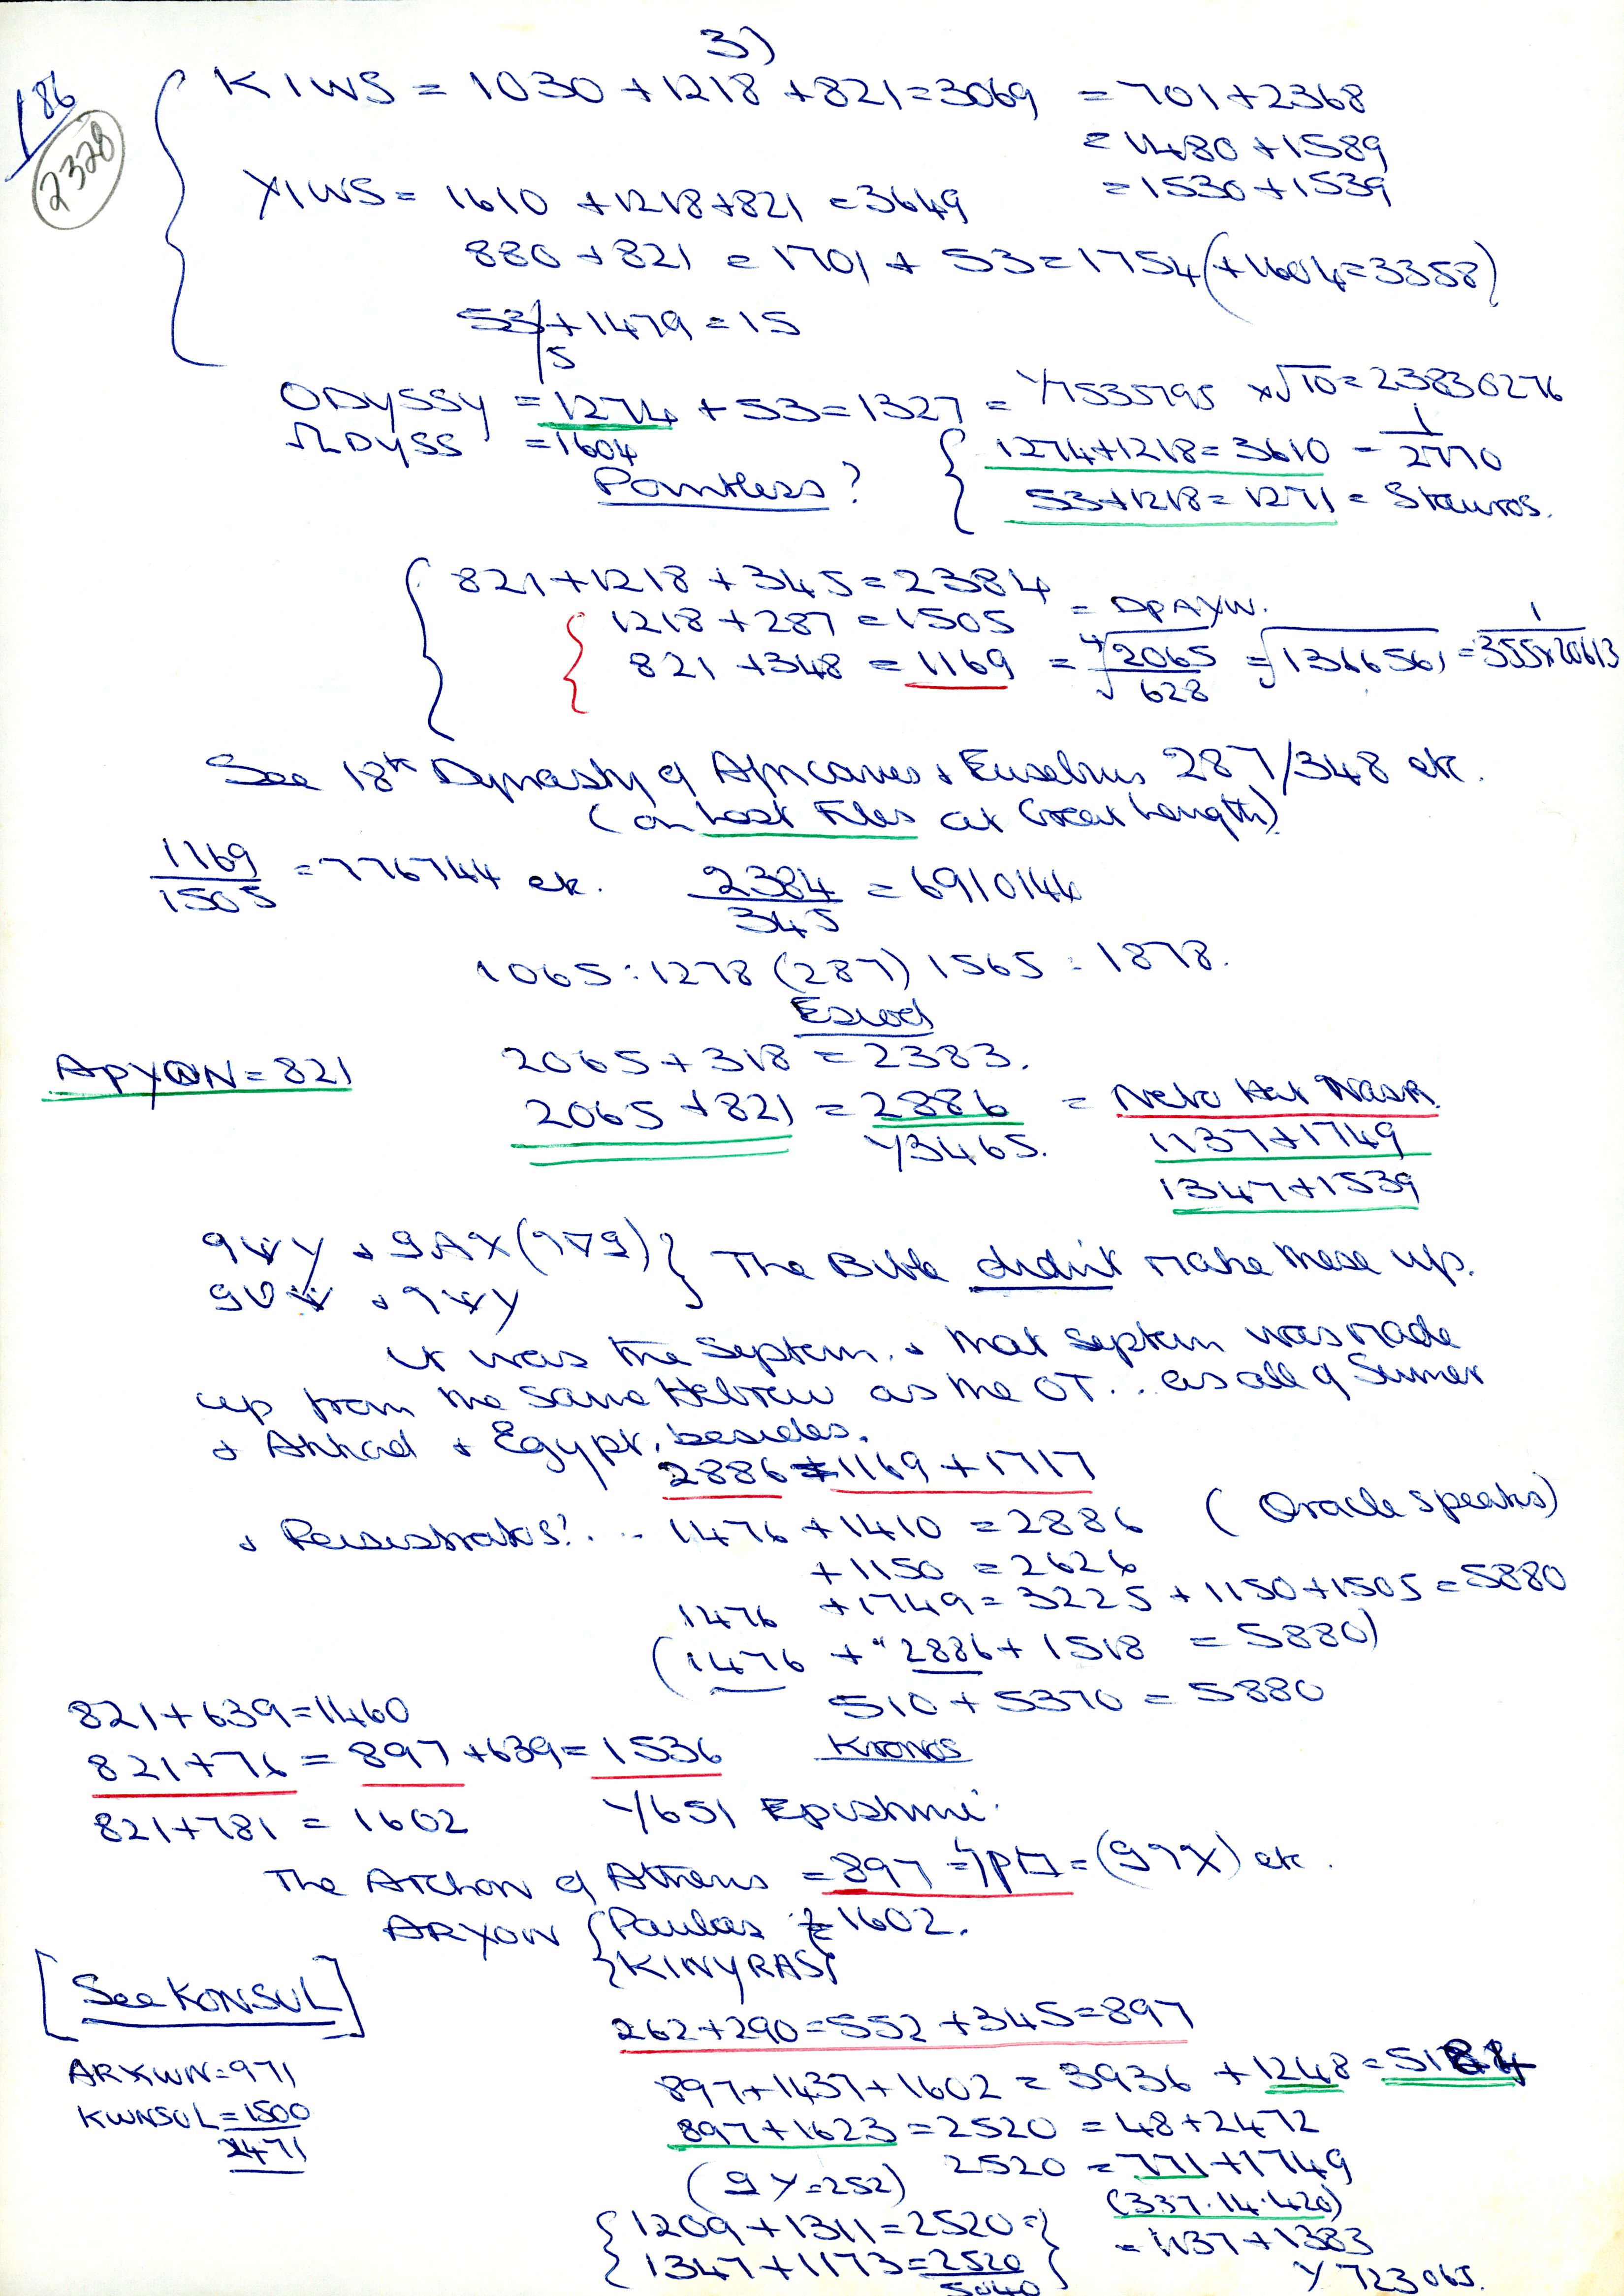 3)
186
2328
KIWS = 1030 + 1218 + 821 = 3069 = 701 + 2368
= 1480 + 1589
= 1530 + 1539
XIWS = 1610 + 1218 + 821 = 3649
880 + 821 = 1701 + 53 = 1754 (+1604 = 3358)
53/5 + 1479 = 15
ODYSSY = 1274 + 53 = 1327 = 1/7535795 x√10 = 23830276
ΩDYSS = 1604
1274 + 1218 = 3610 = 1/2770
Pointless?
53 + 1218 = 1271 = Stauros.
821 + 1218 + 345 = 2384
1218 + 287 = 1505 = DPAXW.
821 + 348 = 1169 = 4√2065/√628 = √1366561 = 1/355x20613
See 18th Dynasty of Africanus & Eusebius 287/348 etc.
(on Lost Files at Great Length)
1169/1505 = 776744 etc. 2384/345 = 6910144
1065 : 1278 (287) 1565 : 1878.
Esiod
2065 + 318 = 2383.
APXON = 821
2065 + 821 = 2886 = Nebo Hat Nasr.
1/3465. 1137 + 1749
1347 + 1539
The Bible didn't make these up.
It was the Septem. & that Septem was made
up from the same Hebrew as the OT... as all of Sumer
& Akkad & Egypt, besides.
2886 = 1169 + 1717
& Peisistratus?... 1476 + 1410 = 2886 (Oracle speaks)
+ 1150 = 2626
1476 + 1749 = 3225 + 1150 + 1505 = 5880
(1476 + "2886 + 1518 = 5880)
510 + 5370 = 5880
Kronos
821 + 639 = 1460
821 + 76 = 897 + 639 = 1536
821 + 781 = 1602 1/651 Epistimi.
The Archon of Athens = 897 = (99X) etc.
ARXON { Paulas = 1602.
{ KINYRAS }
[See KONSUL]
262 + 290 = 552 + 345 = 897
ARXWN = 971
897 + 1437 + 1602 = 3936 + 1248 = 5184
KWNSUL = 1500
2471
897 + 1623 = 2520 = 48 + 2472
2520 = 771 + 1749
(9Y = 252) (337.14.420)
{1209 + 1311 = 2520 =} = 1137 + 1383
{1347 + 1173 = 2520 1/723065.
5040